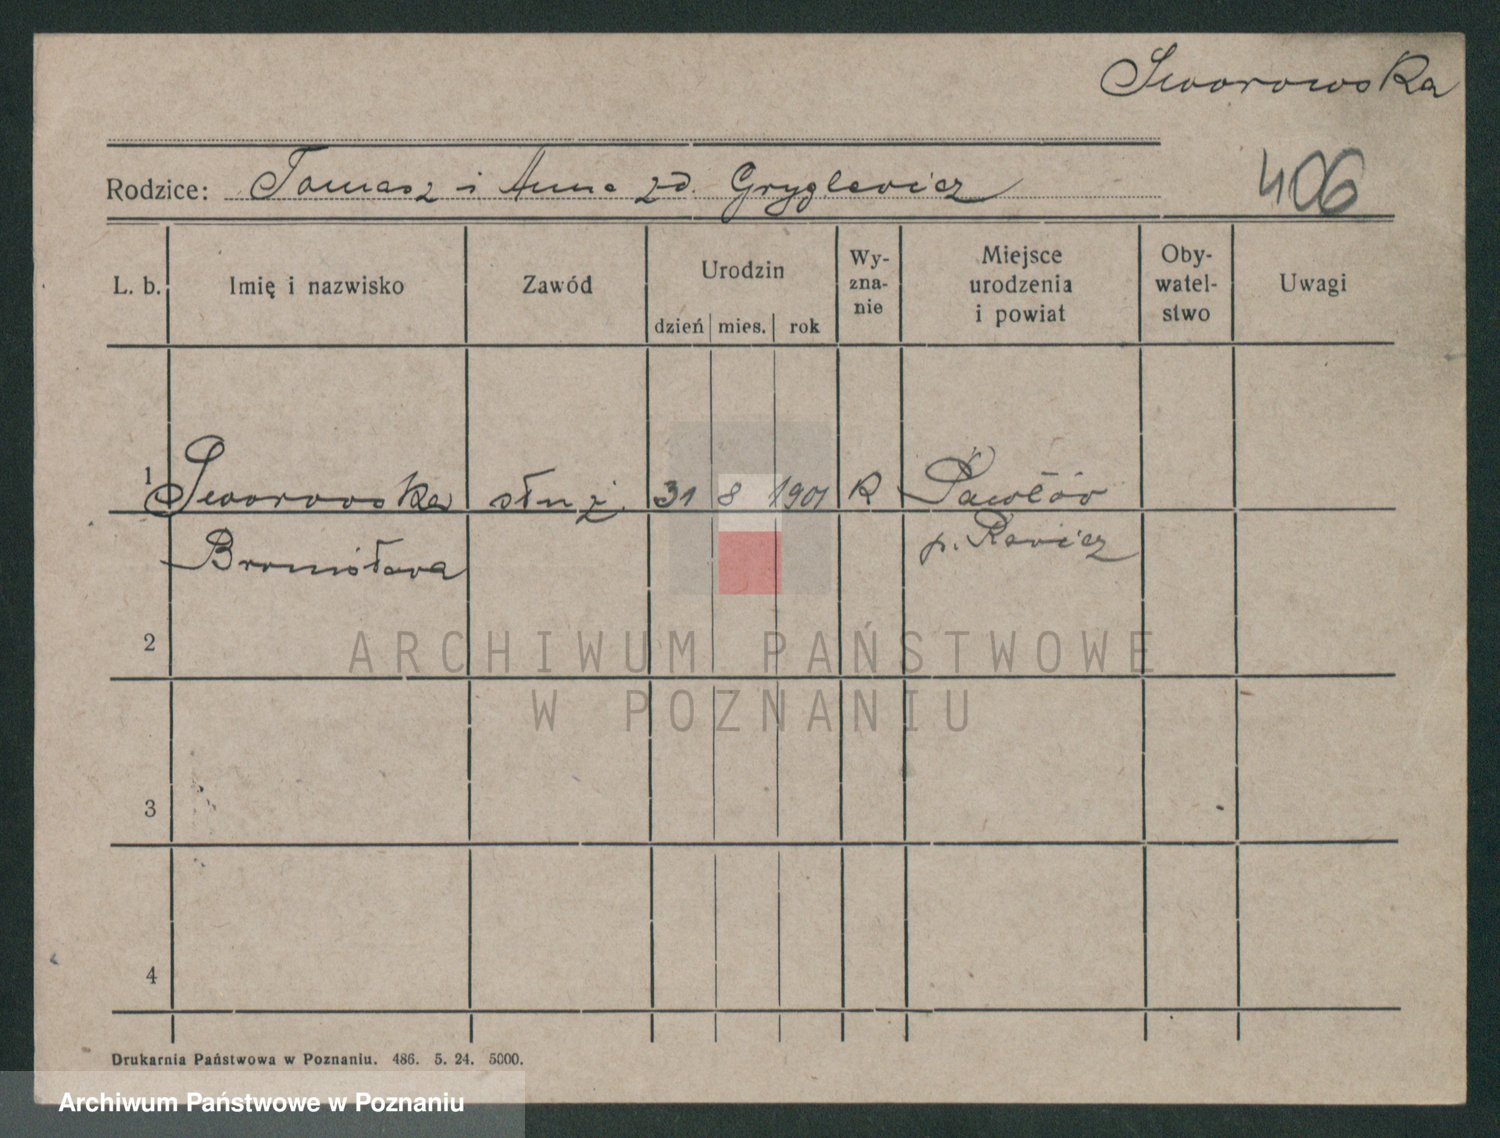 Sworowska
Rodzice: Tomasz i Anna zd. Gryglewicz
406
L. b. Imię i nazwisko Zawód Urodzin dzień mies. rok Wy-zna-nie Miejsce urodzenia i powiat Oby-watel-stwo Uwagi
1 Sworowska służ. 31 8 1901 R Pawłów
Bronisława p. Rawicz
2
ARCHIWUM PAŃSTWOWE
W POZNANIU
3
4
Drukarnia Państwowa w Poznaniu. 486. 5. 24. 5000.
Archiwum Państwowe w Poznaniu